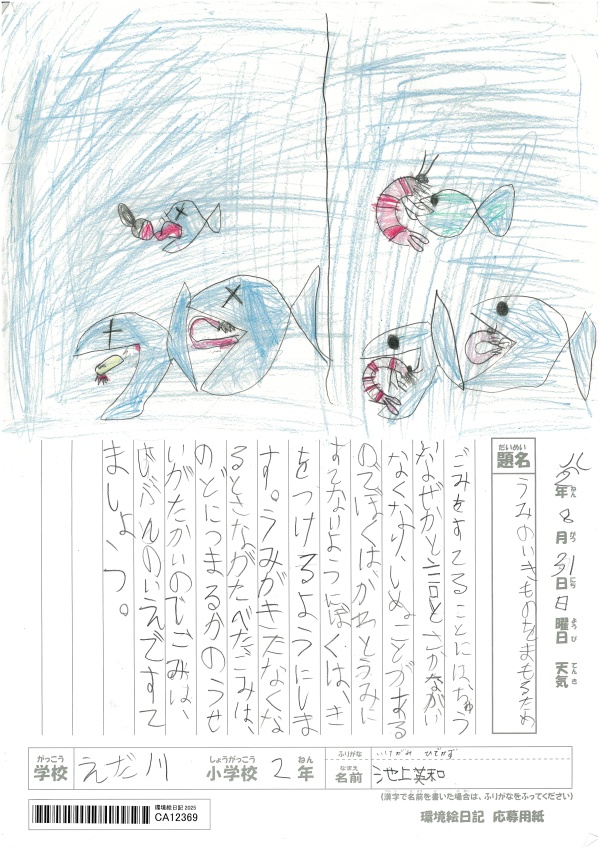 令年8月31日日曜日 天気
ねん がつ にち ようび てんき
だいめい
題名 うみのいきものをまもるため
ごみをすてることにはちゅう
なぜかと言うとさかながい
なくなり、しぬことがある
のでぼくはかわとうみに
すてないようにぼくは、き
をつけるようにしま
す。うみがきたなくな
るとさかながたべたごみは、
のどにつまるかのうせ
いがたかいのでごみは、
じぶんのいえですて
ましょう。
がっこう
学校 えだ川
しょうがっこう
小学校 2年
ねん
ふりがな いけがみ ひでかず
なまえ
名前 池上英和
(漢字で名前を書いた場合は、ふりがなをふってください)
環境絵日記 応募用紙
環境絵日記 2025
CA12369